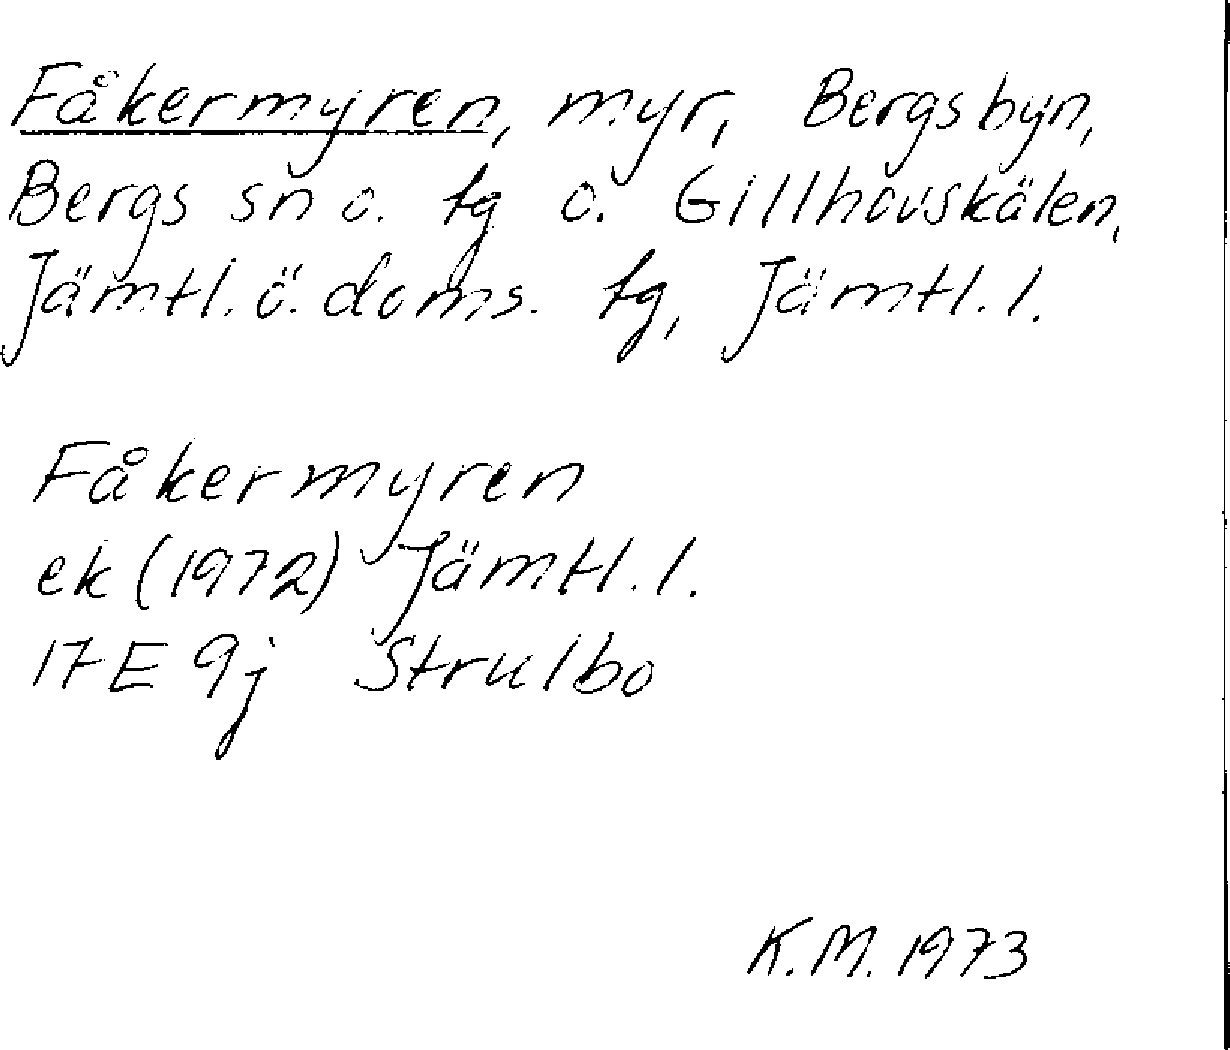 Fåkermyren, myr, Bergsbyn,
Bergs sn o. tg o. Gillhovskälen,
Jämtl. ö. doms. tg, Jämtl. l.
Fåkermyren
ek (1972) Jämtl. l.
17E 9j Strulbo
K.M. 1973